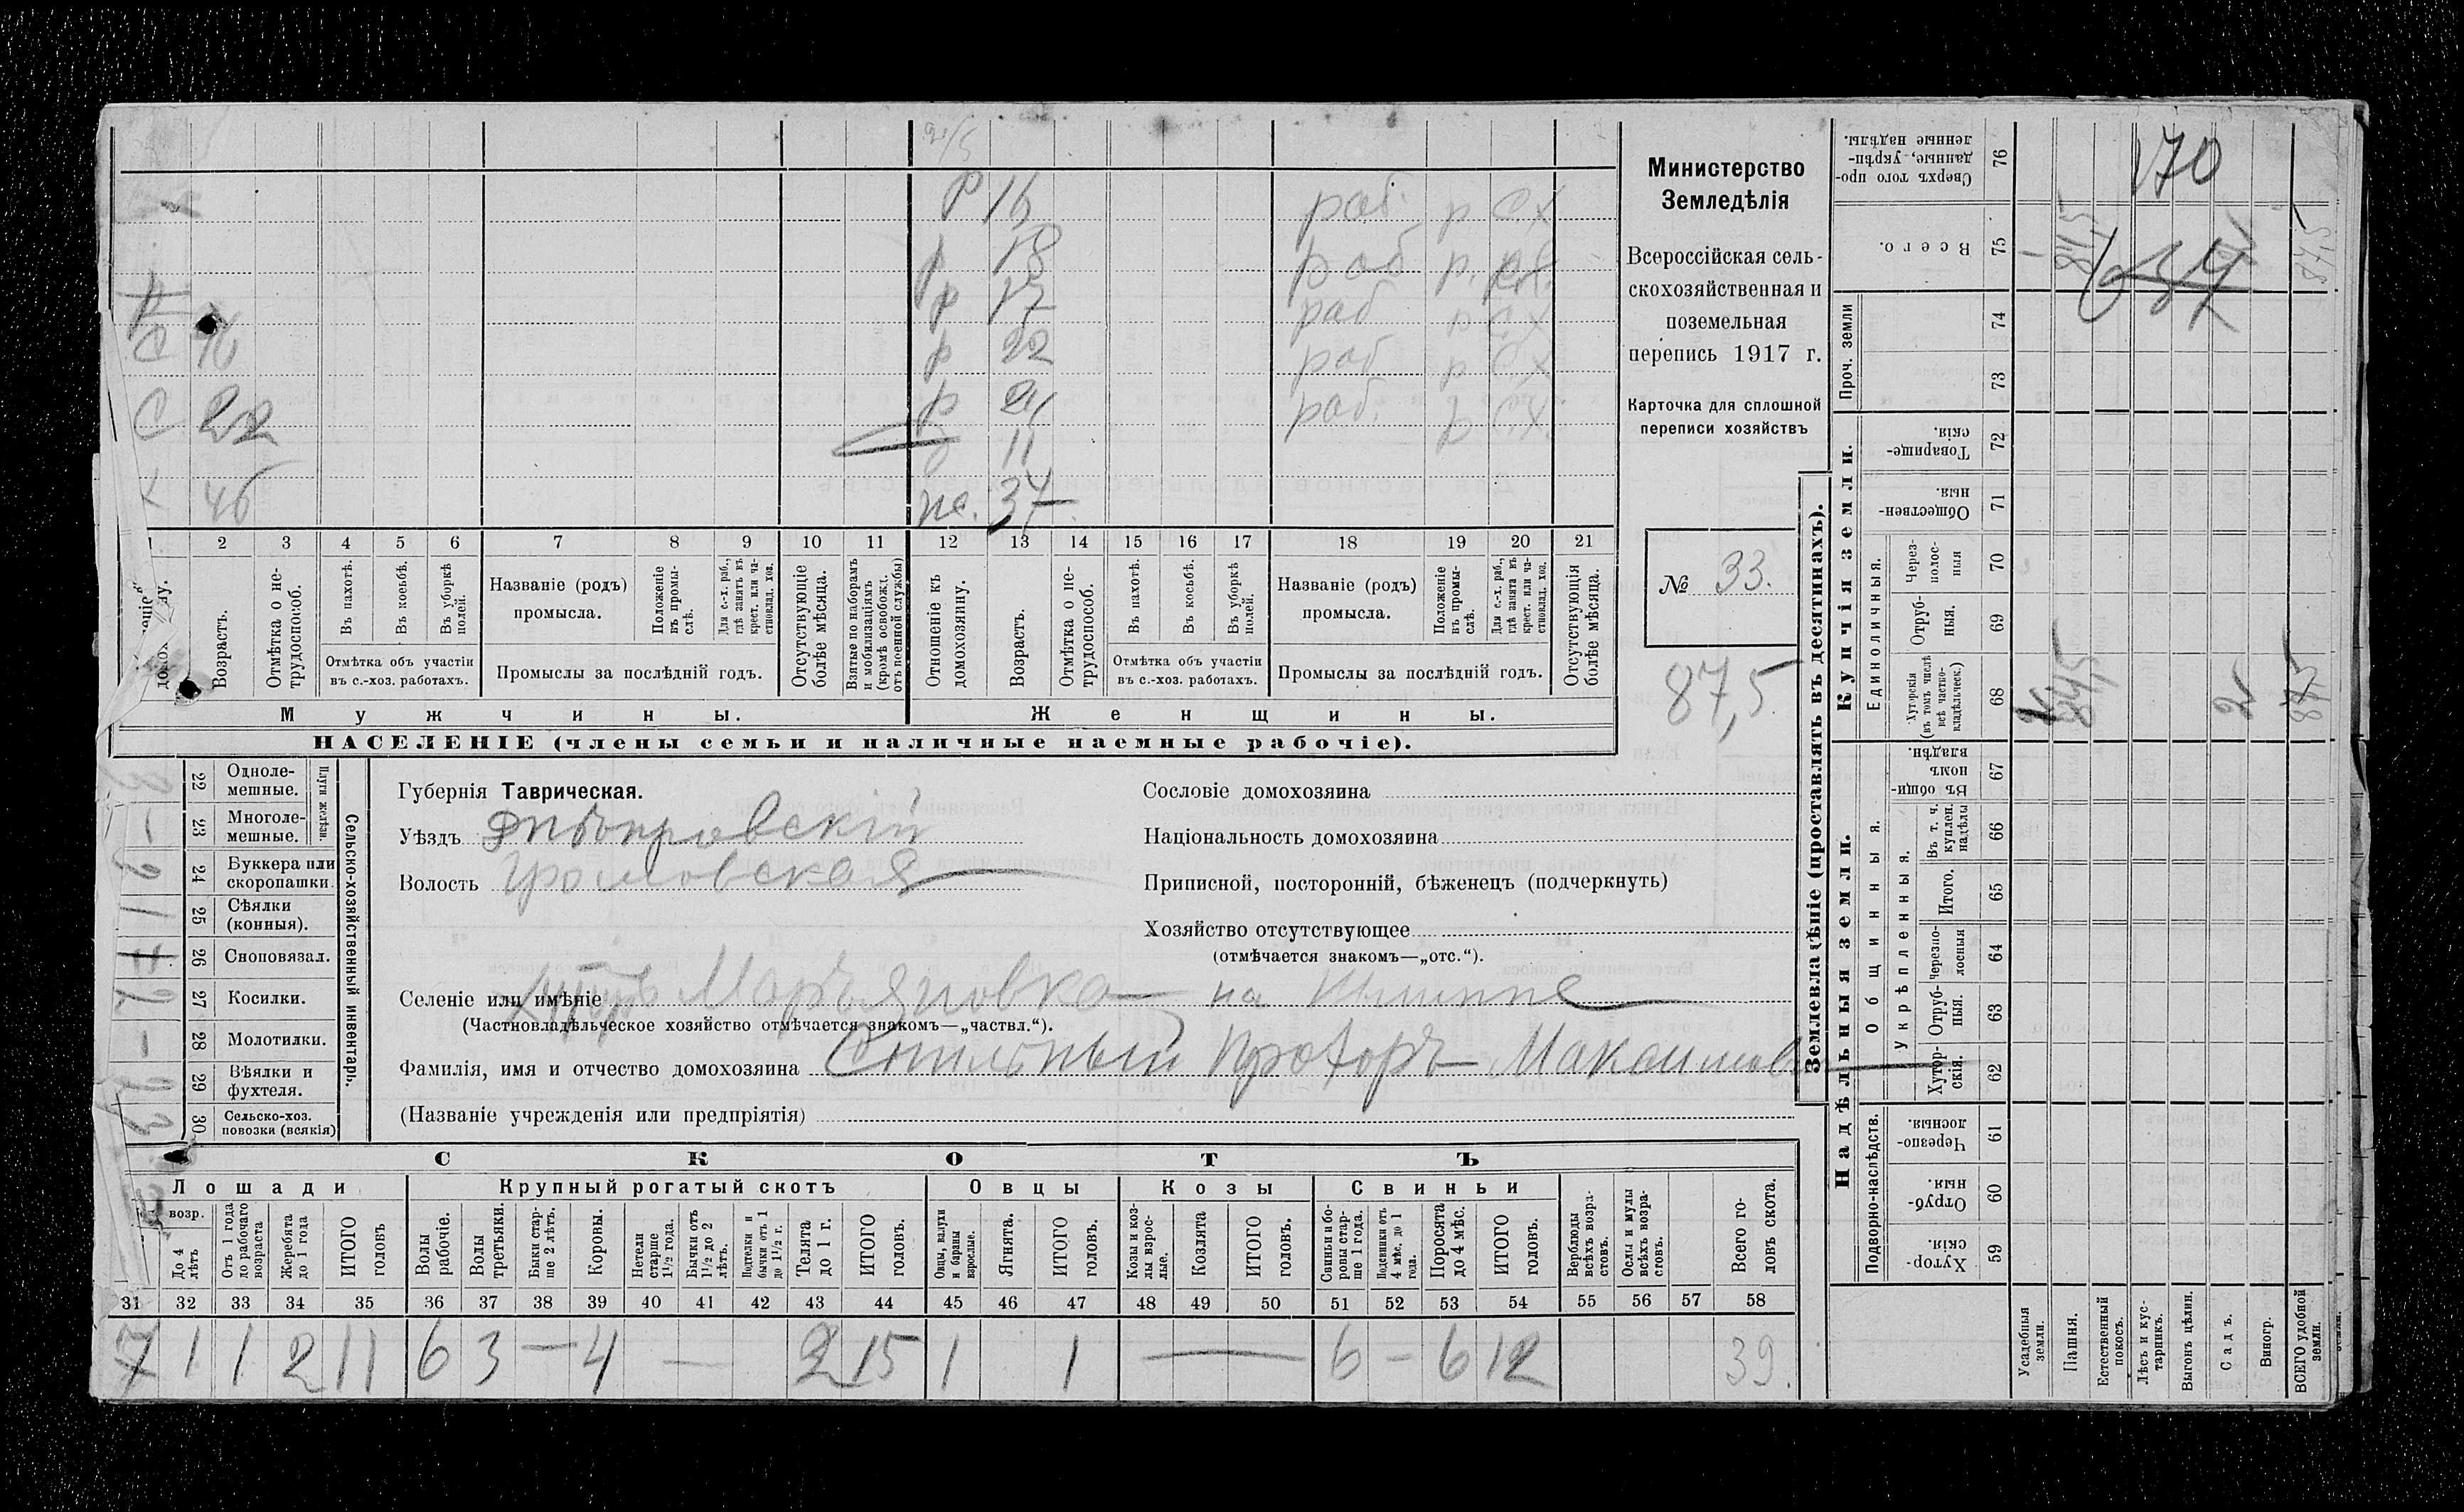 20/5
р 16 раб. р с.х
р 18 раб р. с.х.
р 17 раб р с.х
С 16 р 22 раб р с.х
С 22 р 21 раб. р с.х.
11
х 46 же. 37
1 2 3 4 5 6 7 8 9 10 11 12 13 14 15 16 17 18 19 20 21
Возрастъ.
Отмѣтка о не-
трудоспособ.
Въ пахотѣ.
Въ косьбѣ.
Въ уборкѣ
полей.
Отмѣтка объ участіи
въ с.-хоз. работахъ.
Названіе (родъ)
промысла.
Положеніе
въ промы-
слѣ.
Для с.-х. раб.,
гдѣ занятъ въ
крест. или ча-
стновлад. хоз.
Промыслы за послѣдній годъ.
Отсутствующіе
болѣе мѣсяца.
Взятые по наборамъ
и мобилизаціямъ
(кромѣ освобожд.
отъ военной службы)
Отношеніе къ
домохозяину.
Возрастъ.
Отмѣтка о не-
трудоспособ.
Въ пахотѣ.
Въ косьбѣ.
Въ уборкѣ
полей.
Отмѣтка объ участіи
въ с.-хоз. работахъ.
Названіе (родъ)
промысла.
Положеніе
въ промы-
слѣ.
Для с.-х. раб.,
гдѣ занята въ
крест. или ча-
стновлад. хоз.
Промыслы за послѣдній годъ.
Отсутствующія
болѣе мѣсяца.
Мужчины. Женщины.
НАСЕЛЕНІЕ (члены семьи и наличные наемные рабочіе).
Министерство
Земледѣлія
Всероссійская сель-
скохозяйственная и
поземельная
перепись 1917 г.
Карточка для сплошной
переписи хозяйствъ
№ 33.
87,5
22 Одноле-
мешные.
23 Многоле-
мешные.
Плуги желѣзн.
24 Буккера или
скоропашки.
25 Сѣялки
(конныя).
26 Сноповязал.
27 Косилки.
28 Молотилки.
29 Вѣялки и
фухтеля.
30 Сельско-хоз.
повозки (всякія)
Сельско-хозяйственный инвентарь.
Губернія Таврическая.
Уѣздъ Днѣпровскій
Волость Громовская
Сословіе домохозяина
Національность домохозяина
Приписной, посторонній, бѣженецъ (подчеркнуть)
Хозяйство отсутствующее
(отмѣчается знакомъ—„отс.“).
Селеніе или имѣніе Хуторъ Марьяновка на
(Частновладѣльческое хозяйство отмѣчается знакомъ—„частвл.“).
Фамилія, имя и отчество домохозяина Прохоръ Максимов
(Названіе учрежденія или предпріятія)
СКОТЪ
Лошади Крупный рогатый скотъ Овцы Козы Свиньи
возр.
До 4
лѣтъ
Отъ 1 года
до рабочаго
возраста
Жеребята
до 1 года
ИТОГО
головъ
Волы
рабочіе.
Волы
третьяки.
Быки стар-
ше 2 лѣтъ.
Коровы.
Нетели
старше
1½ года.
Бычки отъ
1½ до 2
лѣтъ.
Подтелки и
бычки отъ 1
до 1½ г.
Телята
до 1 г.
ИТОГО
головъ.
Овцы, валухи
и бараны
взрослые.
Ягнята.
ИТОГО
головъ.
Козы и коз-
лы взрос-
лые.
Козлята
ИТОГО
головъ.
Свиньи и бо-
ровы стар-
ше 1 года.
Подсвинки отъ
4 мѣс. до 1
года.
Поросята
до 4 мѣс.
ИТОГО
головъ.
Верблюды
всѣхъ возра-
стовъ.
Ослы и мулы
всѣхъ возра-
стовъ.
Всего го-
ловъ скота.
31 32 33 34 35 36 37 38 39 40 41 42 43 44 45 46 47 48 49 50 51 52 53 54 55 56 57 58
7 1 1 2 11 6 3 — 4 — 2 15 1 1 — 6 — 6 12 39.
Землевладѣніе (проставлять въ десятинахъ).
Надѣльныя земли. Купчія земли. Проч. земли
Подворно-наслѣдств.
Общинныя.
Укрѣпленныя.
Единоличныя.
Сверхъ того про-
данные, укрѣп-
ленные надѣлы. 76 170
Всего. 75 1 84,5 87,5
74
73
Товарище-
скія. 72
Обществен-
ныя. 71
Через-
полос-
ныя 70
Отруб-
ныя. 69
Хуторскія
(въ томъ числѣ
всѣ частно-
владѣльческ.) 68 84,5 2 87,5
Въ общи-
номъ
владѣн. 67
Въ т. ч.
куплен.
надѣлы 66
Итого. 65
Черезпо-
лосныя 64
Отруб-
ныя. 63
Хутор-
скія. 62
Черезпо-
лосныя. 61
Отруб-
ныя. 60
Хутор-
скія. 59
Усадебныя
земли.
Пашня.
Естественный
покосъ.
Лѣсъ и кус-
тарникъ.
Выгонъ цѣлин.
Садъ.
Виногр.
ВСЕГО удобной
земли.